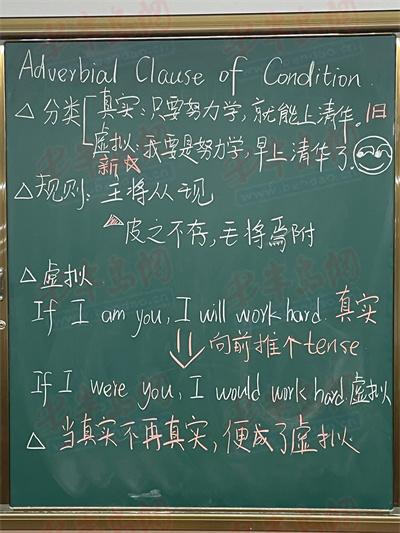 Adverbial Clause of Condition.
△分类 真实:只要努力学,就能上清华。旧
虚拟:我要是努力学,早上清华了。
△规则:主将从现
皮之不存,毛将焉附
△虚拟
If I am you, I will work hard. 真实
向前推个tense
If I were you, I would work hard. 虚拟
△当真实不再真实,便成了虚拟